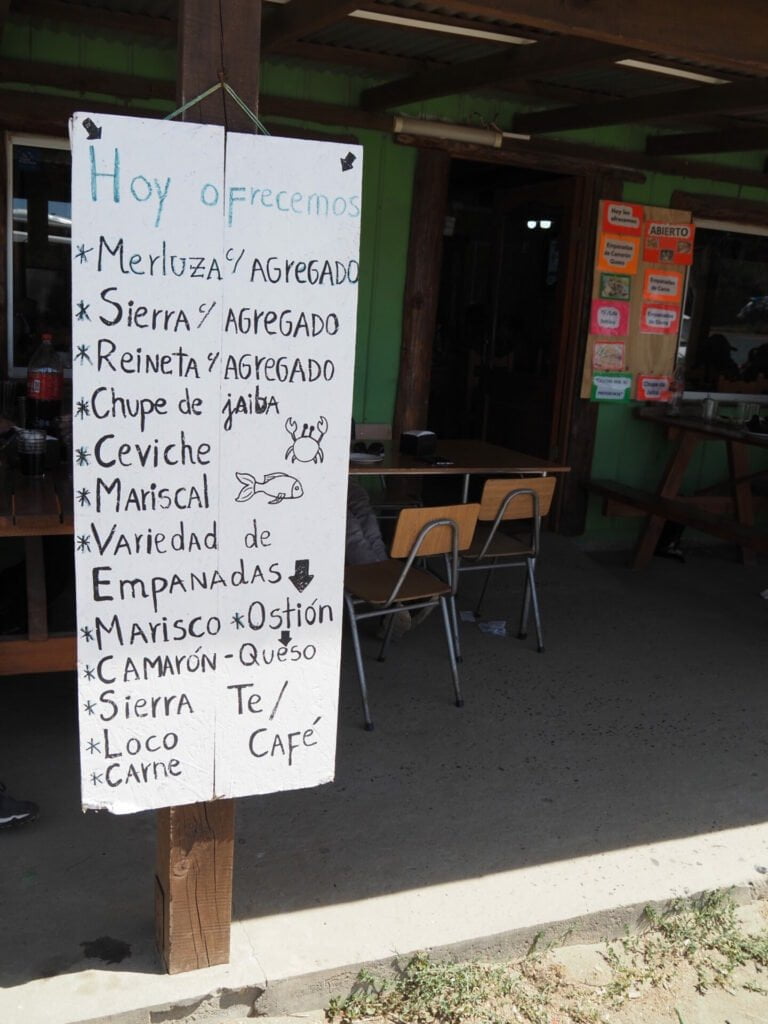 Hoy ofrecemos
*Merluza c/ AGREGADO
*Sierra c/ AGREGADO
*Reineta c/ AGREGADO
*Chupe de jaiba
*Ceviche
*Mariscal
*Variedad de
Empanadas
*Marisco *Ostión
*CAMARÓN-Queso
*Sierra Te/
*Loco CAFÉ
*CARNE
Hoy les
ofrecemos
ABIERTO
Empanadas
de Camarón
Queso
Empanadas
de Carne
Empanadas
de Sierra
Chupe de